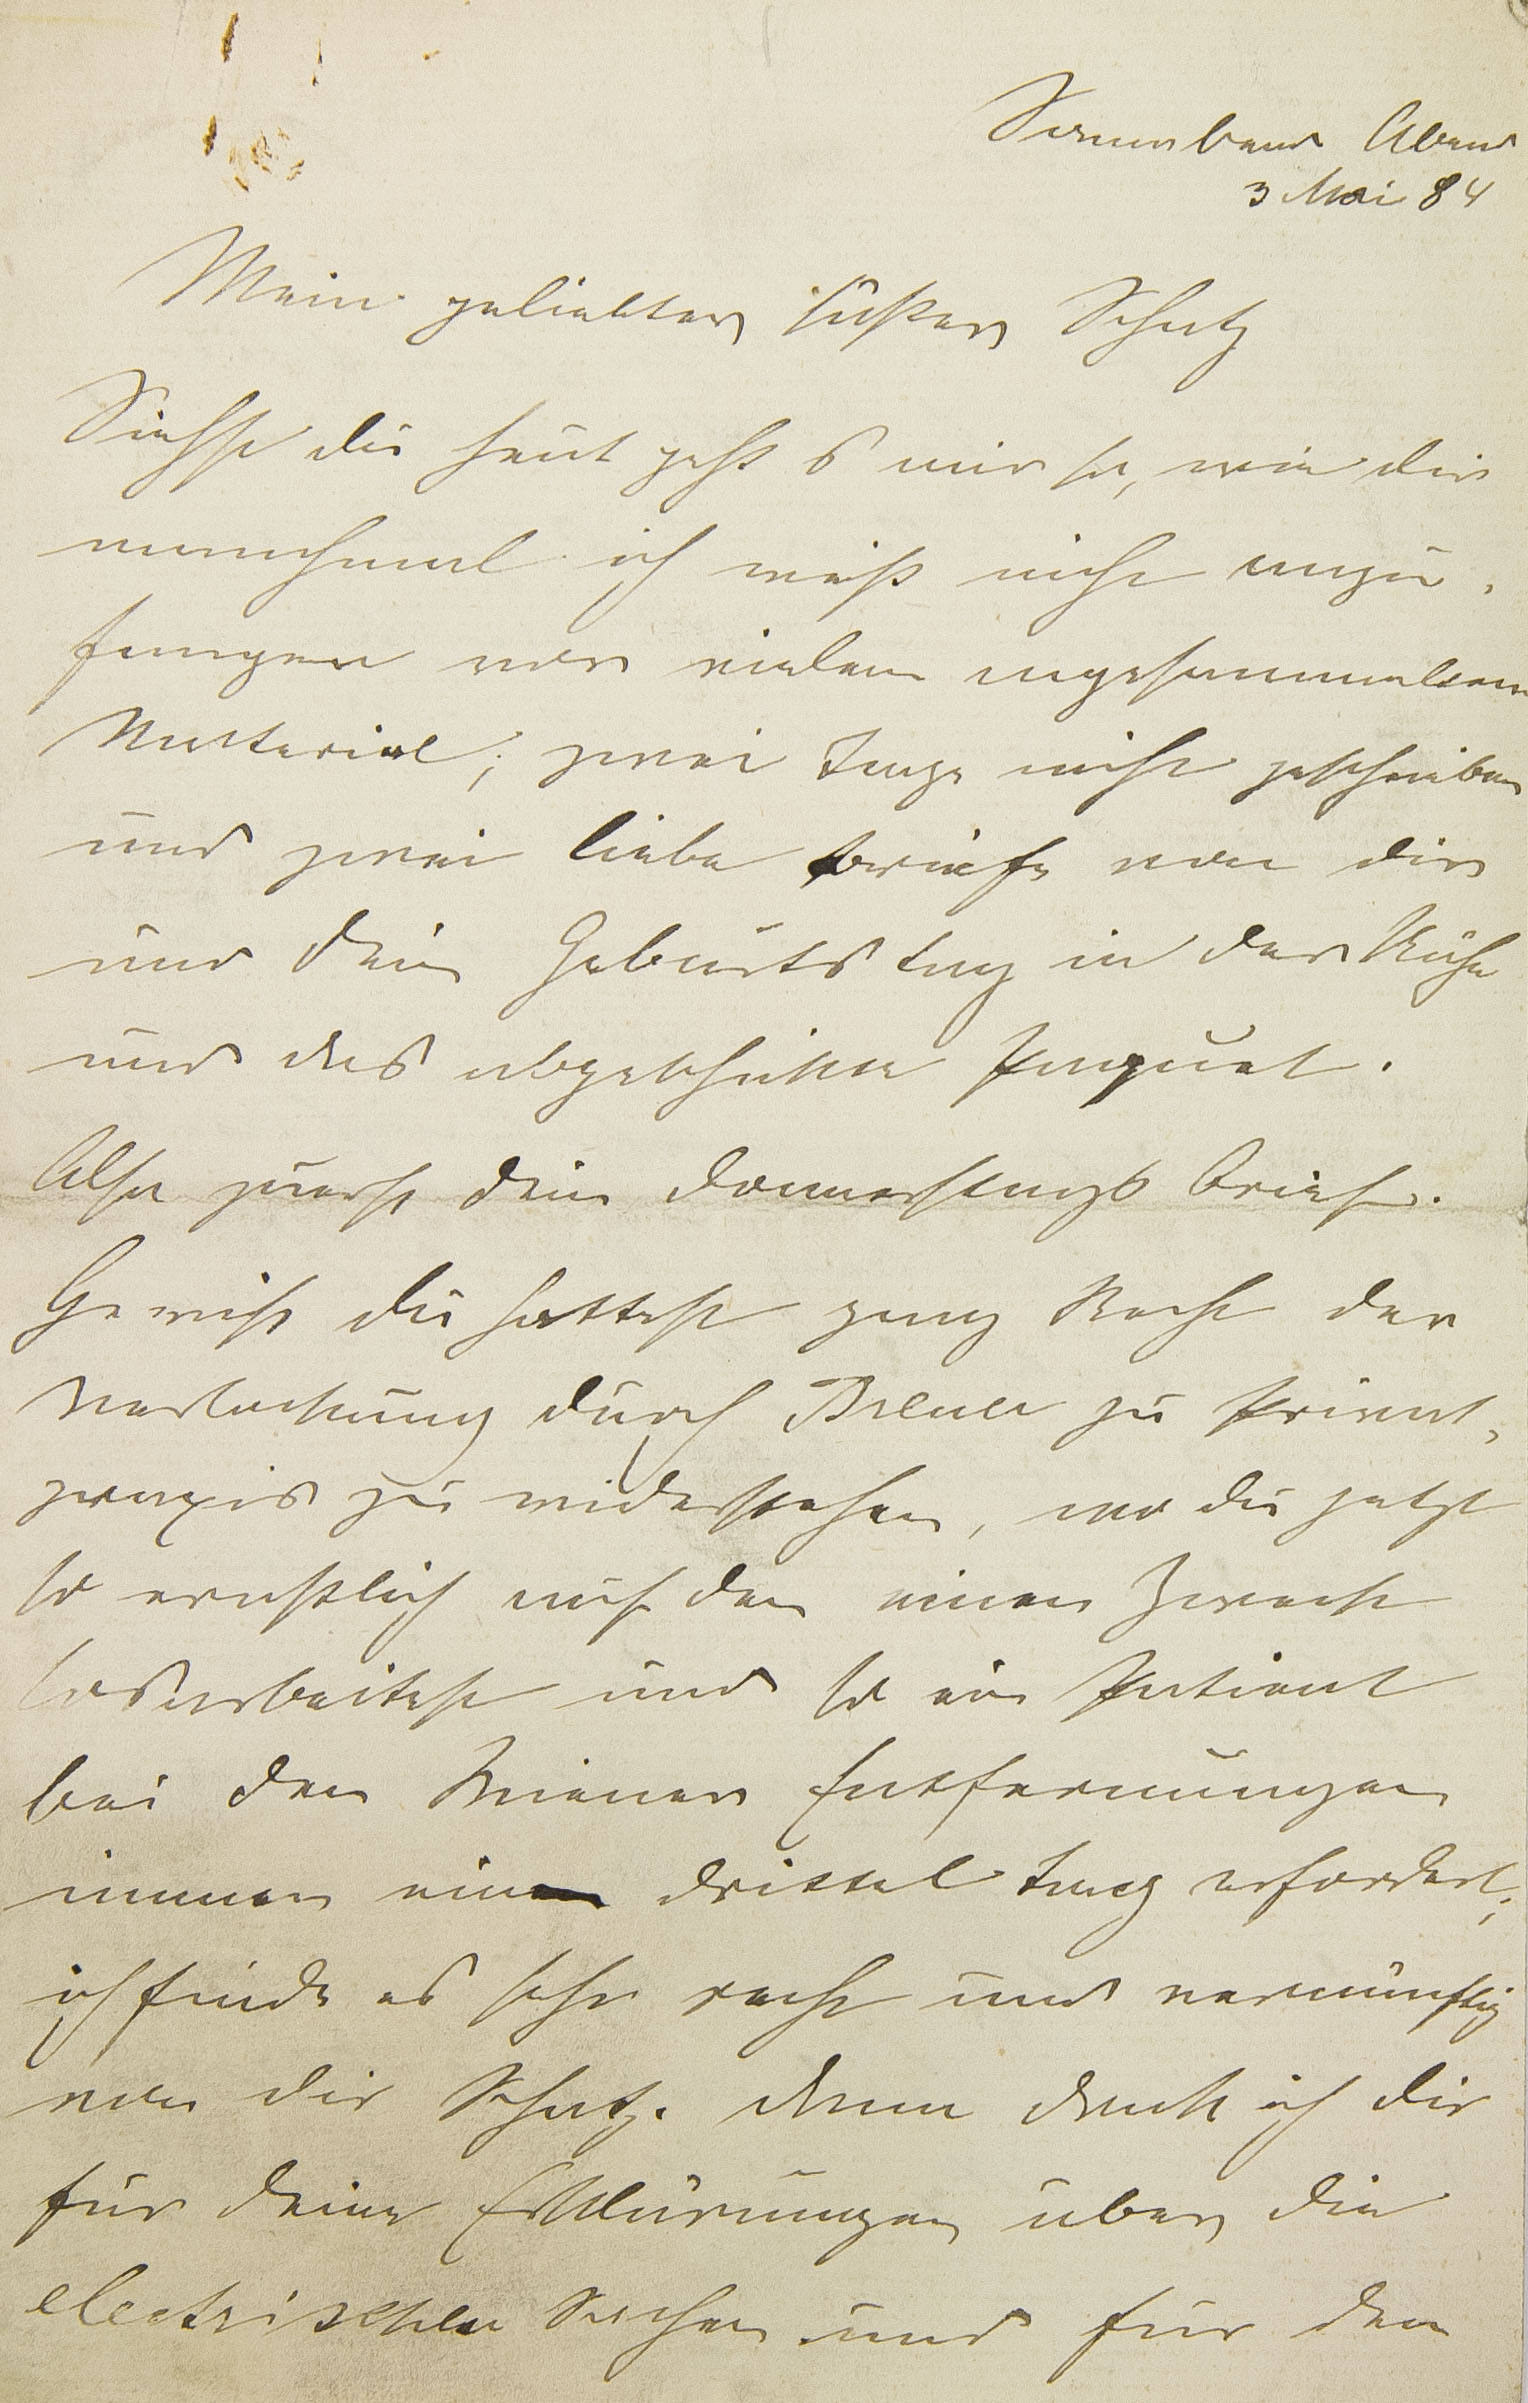 Sonnabend Abend
3 Mai 84
Mein geliebter süßer Schatz
Siehst du heut geht's mir so, wie dir
manchmal ich weiß nicht anzu-
fangen vor vielem angesammeltem
Material; zwei Tage nicht geschrieben
und zwei liebe Briefe von dir
und dein Geburtstag in der Nähe
und das abgeschickte Paquet.
Also zuerst dein Donnerstagsbrief.
Gewiß du hattest ganz Recht der
Verlockung durch Breuer zu Privat-
praxis zu widerstehen, wo du jetzt
so ernstlich auf den einen Zweck
losarbeitest und so ein Patient
bei den Wiener Entfernungen
immer ein drittel Tag erfordert;
ich finde es sehr recht und vernünftig
von dir Schatz. Dann dank ich dir
für deine Erklärungen über die
electrischen Sachen und für den